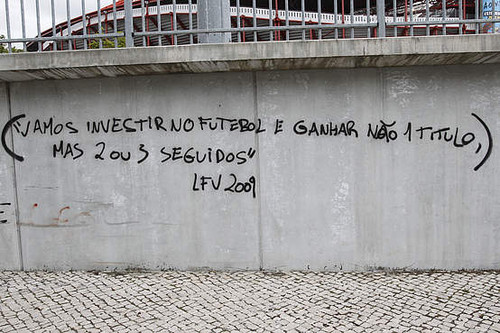 ("VAMOS INVESTIR NO FUTEBOL E GANHAR NÃO 1 TITULO,)
MAS 2 OU 3 SEGUIDOS"
LFV 2009